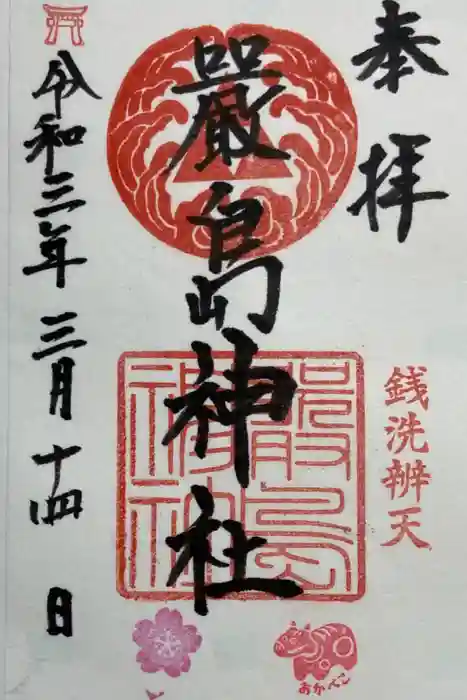 奉拝
銭洗辨天
嚴島神社
嚴島神社
令和三年 三月十四日
あかべこ